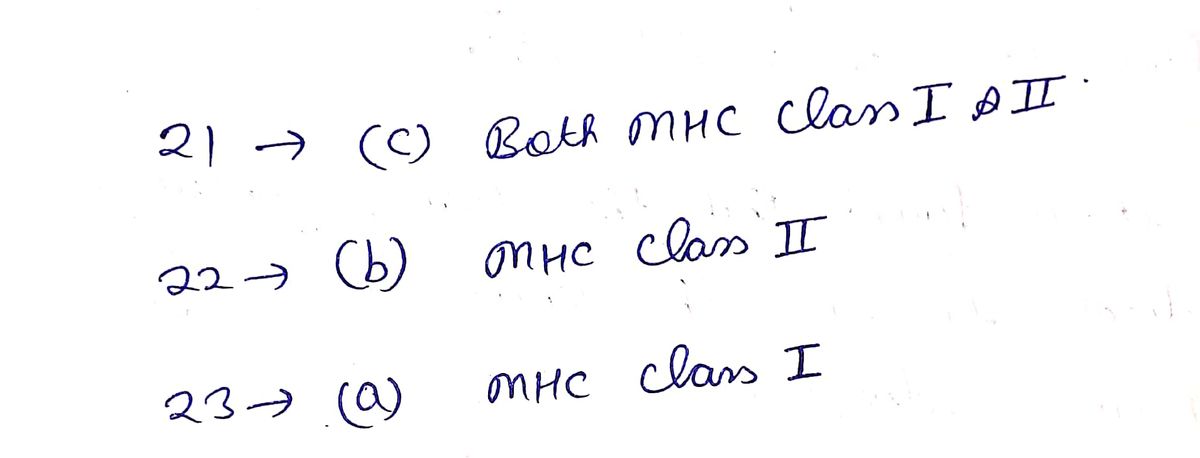 21 → (C) Both MHC Class I & II.
22 → (b) MHC Class II
23 → (a) MHC Class I